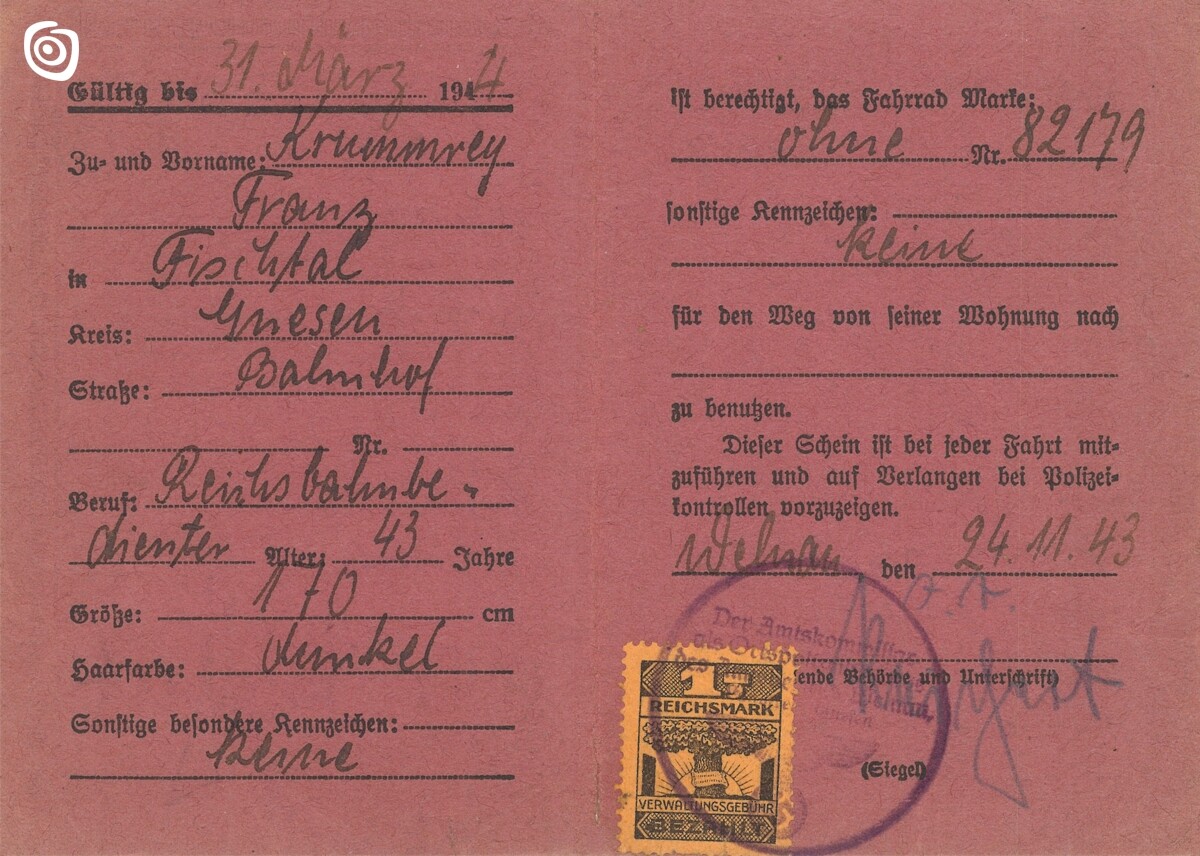 Gültig bis 31. März 1944
Zu- und Vorname: Krummrey
Franz
in Fischtal
Kreis: Gnesen
Straße: Bahnhof
Nr.
Beruf: Reichsbahnbe-
dienter Alter: 43 Jahre
Größe: 170 cm
Haarfarbe: dunkel
Sonstige besondere Kennzeichen:
keine
ist berechtigt, das Fahrrad Marke:
ohne Nr. 82179
sonstige Kennzeichen:
keine
für den Weg von seiner Wohnung nach
zu benutzen.
Dieser Schein ist bei jeder Fahrt mit-
zuführen und auf Verlangen bei Polizei-
kontrollen vorzuzeigen.
Welnau den 24.11.43
Der Amtskommissar
als Ortspolizei
ende Behörde und Unterschrift)
(Siegel)
1
REICHSMARK
VERWALTUNGSGEBÜHR
BEZAHLT